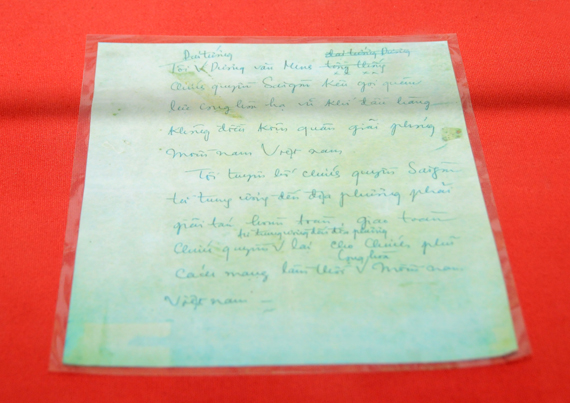 Đại tướng
Tôi V Dương văn Minh tổng thống
Chính quyền Saigon kêu gọi quân
lực cộng hòa hạ vũ khí đầu hàng
không điều kiện quân giải phóng
miền nam Việt nam
Tôi tuyên bố chính quyền Saigon
từ trung ương đến địa phương phải
giải tán hoàn toàn, giao toàn
từ trung ương đến địa phương
chính quyền V lại cho chính phủ
cộng hòa
Cách mạng lâm thời V miền nam
Việt nam